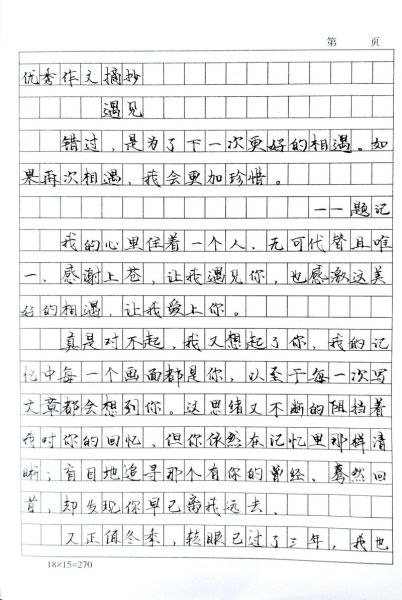 第 页
优秀作文摘抄
遇见
错过,是为了下一次更好的相遇。如
果再次相遇,我会更加珍惜。
——题记
我的心里住着一个人,无可代替且唯
一、感谢上苍,让我遇见你,也感激这美
好的相遇,让我爱上你。
真是对不起,我又想起了你,我的记
忆中每一个画面都是你,以至于每一次写
文章都会想到你。这思绪又不断的阻挡着
我对你的回忆,但你依然在记忆里那样清
晰;盲目地追寻那个有你的曾经,蓦然回
首,却发现你早已离我远去。
又正值冬季,转眼已过了三年,我也
18×15=270